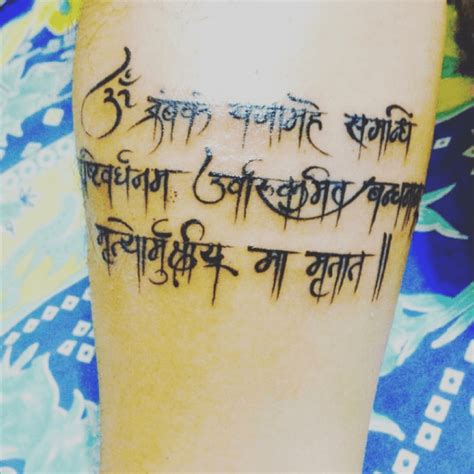 ॐ त्रंबकं यजामहे सुगन्धिं
ष्टिवर्धनम उर्वारुकमिव
मृत्योर्मुक्षीय मा मृतात॥